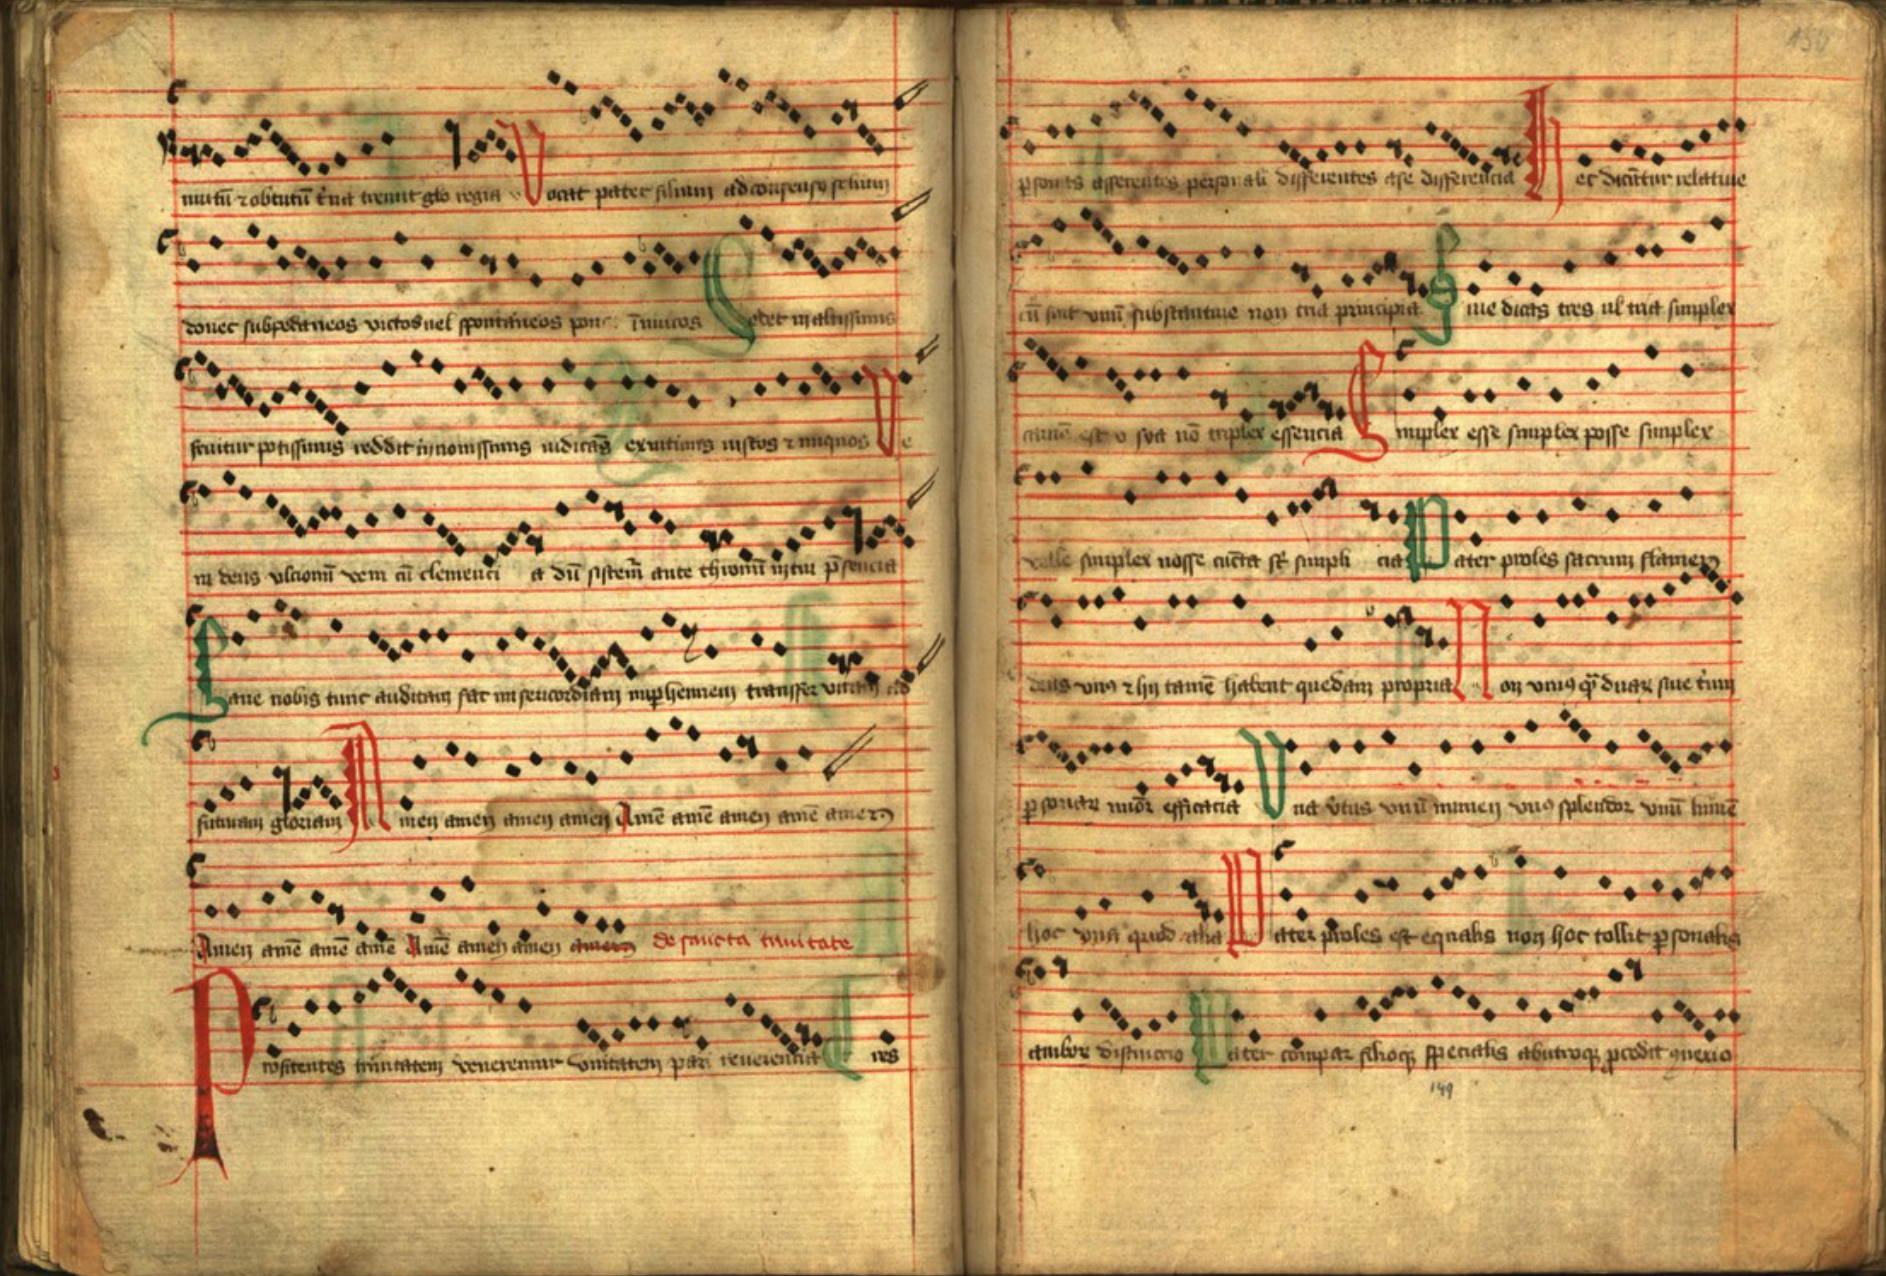 nutū ⁊ obtutū t͛na tremit glo regia Vocat pater filium ad consensū
donec subpedaneos victos uel spontaneos inimicos Sedet in altissimis
fruitur potissimis reddit in nouissimis iudicās iustos ⁊ iniquos Ve
ni deus ulcionū rem cū clementi a dū sistem̄ ante thronū in tui p̄sencia
Laue nobis tunc auditam fac misericordiam in perhennem transfer vitam ad
futuram gloriam Amen amen amen amen Amē amē amen amē amen
Amen amē amē amē Amē amen amen amen de sancta trinitate
Profitentes trinitatem veneremur vnitatem pari reuerencia Tres
150
ꝑsonas asserentes personali differentes a se differencia Hec dicūtur relatiue
cū sint vnū substantiue non tria principia Siue dicas tres ul tria simplex
tamē est non triplex essencia Simplex esse simplex posse simplex
velle simplex nosse cūcta sūt simplicia Pater proles sacrum flamen
deus vnus ⁊ hij tamē habent quedam propria Non vnius q̄ duar siue t͛um
ꝑsonar minor efficacia Vna v͛tus vnū numen vnus splendor vnū lumē
hoc vna quod alia Pater proles est equalis non hoc tollit ꝑsonalis
ambor distinccio Pater compar filioqꝫ specialis ab utroqꝫ ꝓcedit
149